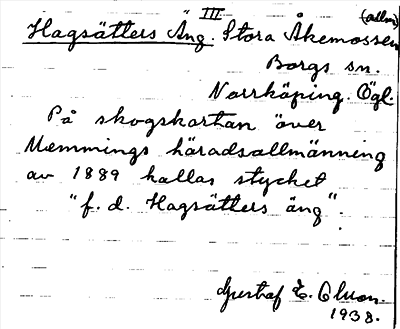 III (allm)
Hagsätters Äng. Stora Åkemossen
Borgs sn.
Norrköping. Ögl.
På skogskartan över
Memmings häradsallmänning
av 1889 kallas stycket
"f. d. Hagsätters äng".
Gustaf E. Olson.
1938.